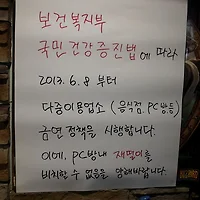 보건복지부
국민건강증진법에 따라
2013. 6. 8 부터
다중이용업소 (음식점, PC방등)
금연정책을 시행합니다.
이에, PC방내 재떨이를
비치할 수 없음을 양해바랍니다.